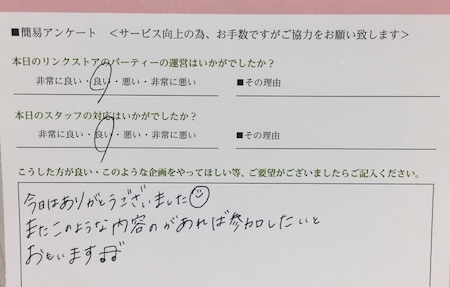 ■簡易アンケート ＜サービス向上の為、お手数ですがご協力をお願い致します＞
本日のリンクストアのパーティーの運営はいかがでしたか？
非常に良い・良い・悪い・非常に悪い ■その理由
本日のスタッフの対応はいかがでしたか？
非常に良い・良い・悪い・非常に悪い ■その理由
こうした方が良い・このような企画をやってほしい等、ご要望がございましたらご記入ください。
今日はありがとうございました☺
またこのような内容のがあれば参加したいと
おもいます♫